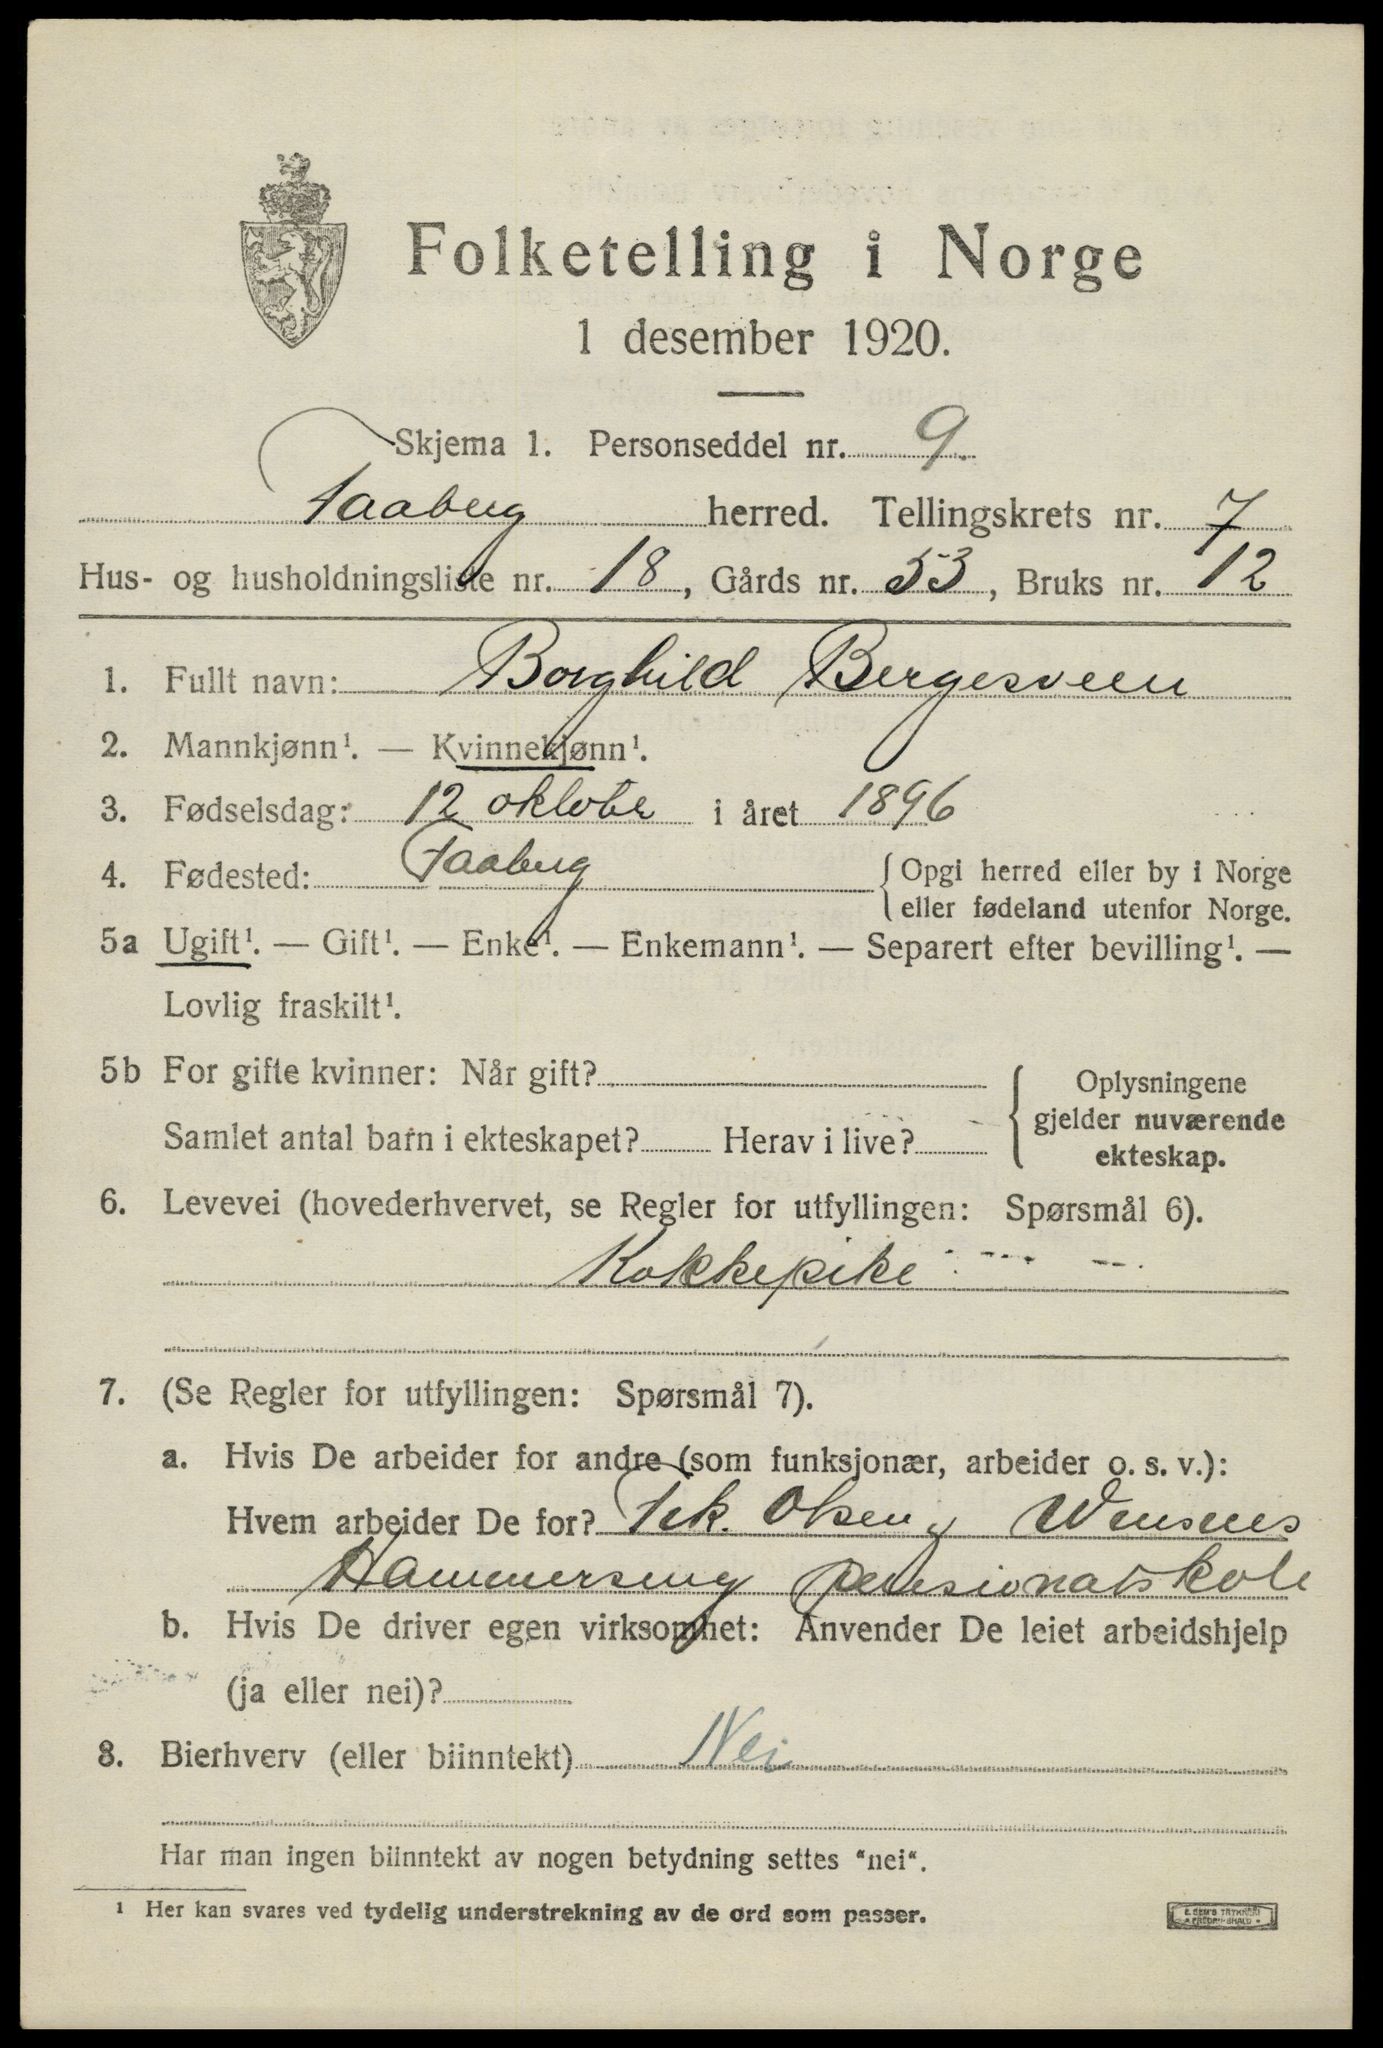 Folketelling i Norge
1 desember 1920.
Skjema 1. Personseddel nr. 9.
Faaberg herred. Tellingskrets nr. 7
Hus- og husholdningsliste nr. 18, Gårds nr. 53, Bruks nr. 12
1. Fullt navn: Borghild Bergesveen
2. Mannkjønn¹. — Kvinnekjønn¹.
3. Fødselsdag: 12 oktober i året 1896
4. Fødested: Faaberg {Opgi herred eller by i Norge
eller fødeland utenfor Norge.
5a Ugift¹. — Gift¹. — Enke¹. — Enkemann¹. — Separert efter bevilling¹. —
Lovlig fraskilt¹.
5b For gifte kvinner: Når gift?
Samlet antal barn i ekteskapet? Herav i live?
Oplysningene
gjelder nuværende
ekteskap.
6. Levevei (hovederhvervet, se Regler for utfyllingen: Spørsmål 6).
Kokkepike
7. (Se Regler for utfyllingen: Spørsmål 7).
a. Hvis De arbeider for andre (som funksjonær, arbeider o. s. v.):
Hvem arbeider De for? Frk. Olsen og
Hammerseng pensionatskole
b. Hvis De driver egen virksomhet: Anvender De leiet arbeidshjelp
(ja eller nei)?
8. Bierhverv (eller biinntekt) Nei
Har man ingen biinntekt av nogen betydning settes "nei".
¹ Her kan svares ved tydelig understrekning av de ord som passer.